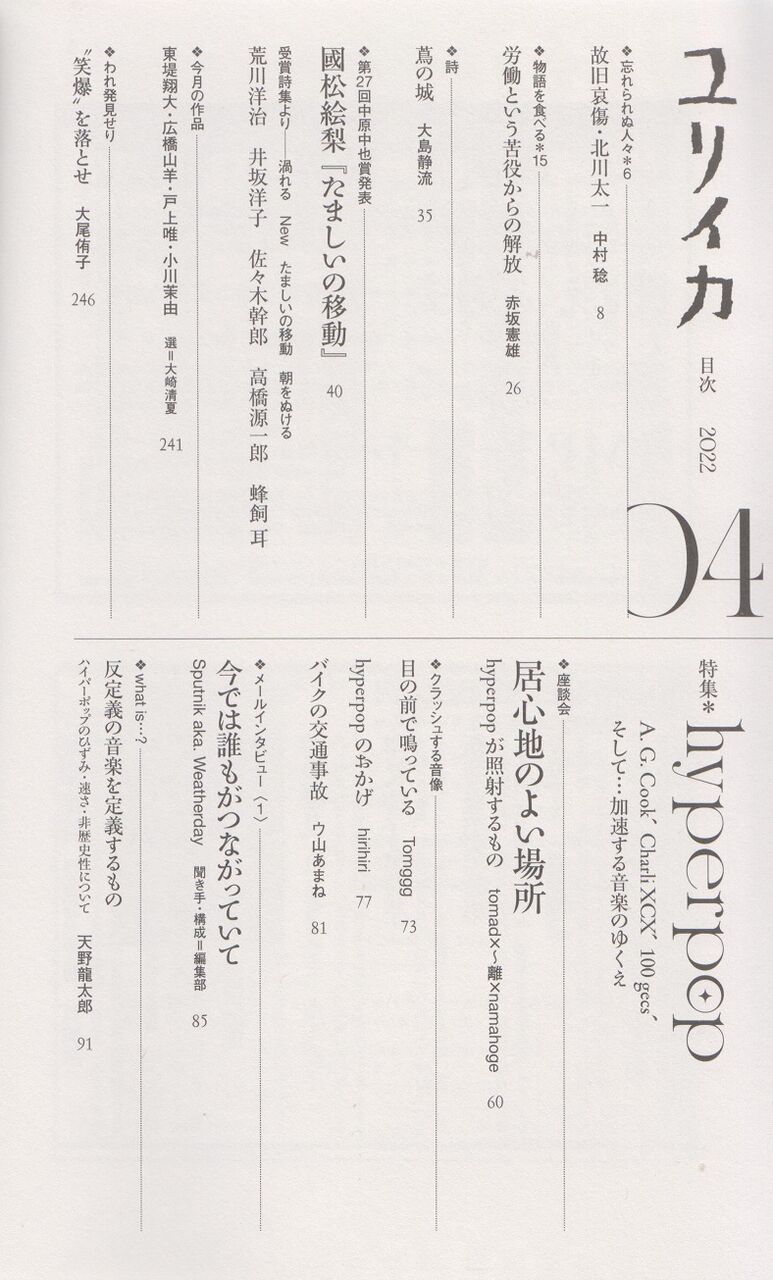 ユリイカ
目次 2022
04
❖忘れられぬ人々＊6
故旧哀傷・北川太一 中村 稔 8
❖物語を食べる＊15
労働という苦役からの解放 赤坂憲雄 26
❖詩
蔦の城 大島静流 35
❖第27回中原中也賞発表
國松絵梨『たましいの移動』 40
受賞詩集より――渦れる New たましいの移動 朝をぬける
荒川洋治 井坂洋子 佐々木幹郎 高橋源一郎 蜂飼 耳
❖今月の作品
東堤翔大・広橋山羊・戸上唯・小川茉由 選＝大崎清夏 241
❖われ発見せり
〝笑爆〟を落とせ 大尾侑子 246
特集＊hyperpop
A. G. Cook、Charli XCX、100 gecs、
そして…加速する音楽のゆくえ
❖座談会
居心地のよい場所
hyperpopが照射するもの tomad×〜離×namahoge 60
❖クラッシュする音像
目の前で鳴っている Tomggg 73
hyperpopのおかげ hirihiri 77
バイクの交通事故 ウ山あまね 81
❖メールインタビュー〈1〉
今では誰もがつながっていて
Sputnik aka. Weatherday 聞き手・構成＝編集部 85
❖what is…?
反定義の音楽を定義するもの
ハイパーポップのひずみ・速さ・非歴史性について 天野龍太郎 91